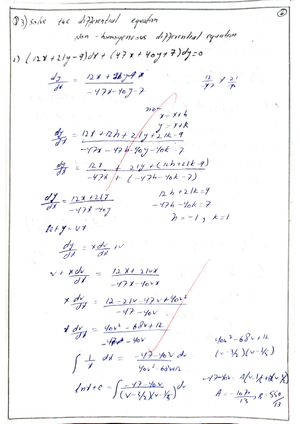 Q3) solve the differential equation
Non-homogeneous differential equation
1) (12x+21y-9)dx + (47x+40y+7)dy=0
dy/dx = 12x+21y-9 / -47x-40y-7
x=x+h
y=y+k
dy/dx = 12x+12h+21y+21k-9 / -47x-47h-40y-40k-7
dy/dx = 12x + 21y+(12h+21k-9) / -47x + (-47h-40k-7)
dy/dx = 12x+21y / -47x-40y
12h+21k=9
-47h-40k=7
h=-1, k=1
let y=vx
dy/dx = xdv/dx +v
v+xdv/dx = 12x+21vx / -47x-40vx
x dv/dx = 12-21v-47v+40v² / -47-40v
x dv/dx = 40v²-68v+12 / -47-40v
∫ 1/x dx = -47-40v dv / 40v²-68v+12
40v²-68v+12
(v-3/2)(v-1/5)
lnx+c = ∫ -47-40v / (v-3/2)(v-1/5) dv